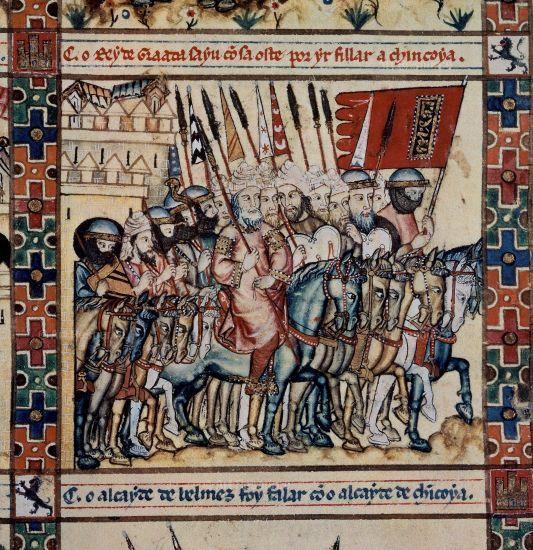 C. o Rey de Graada sayu cõ sa oste por yr fillar a chincoya.
C. o alcayde de belmez foy falar cõ o alcayde de chincoya.